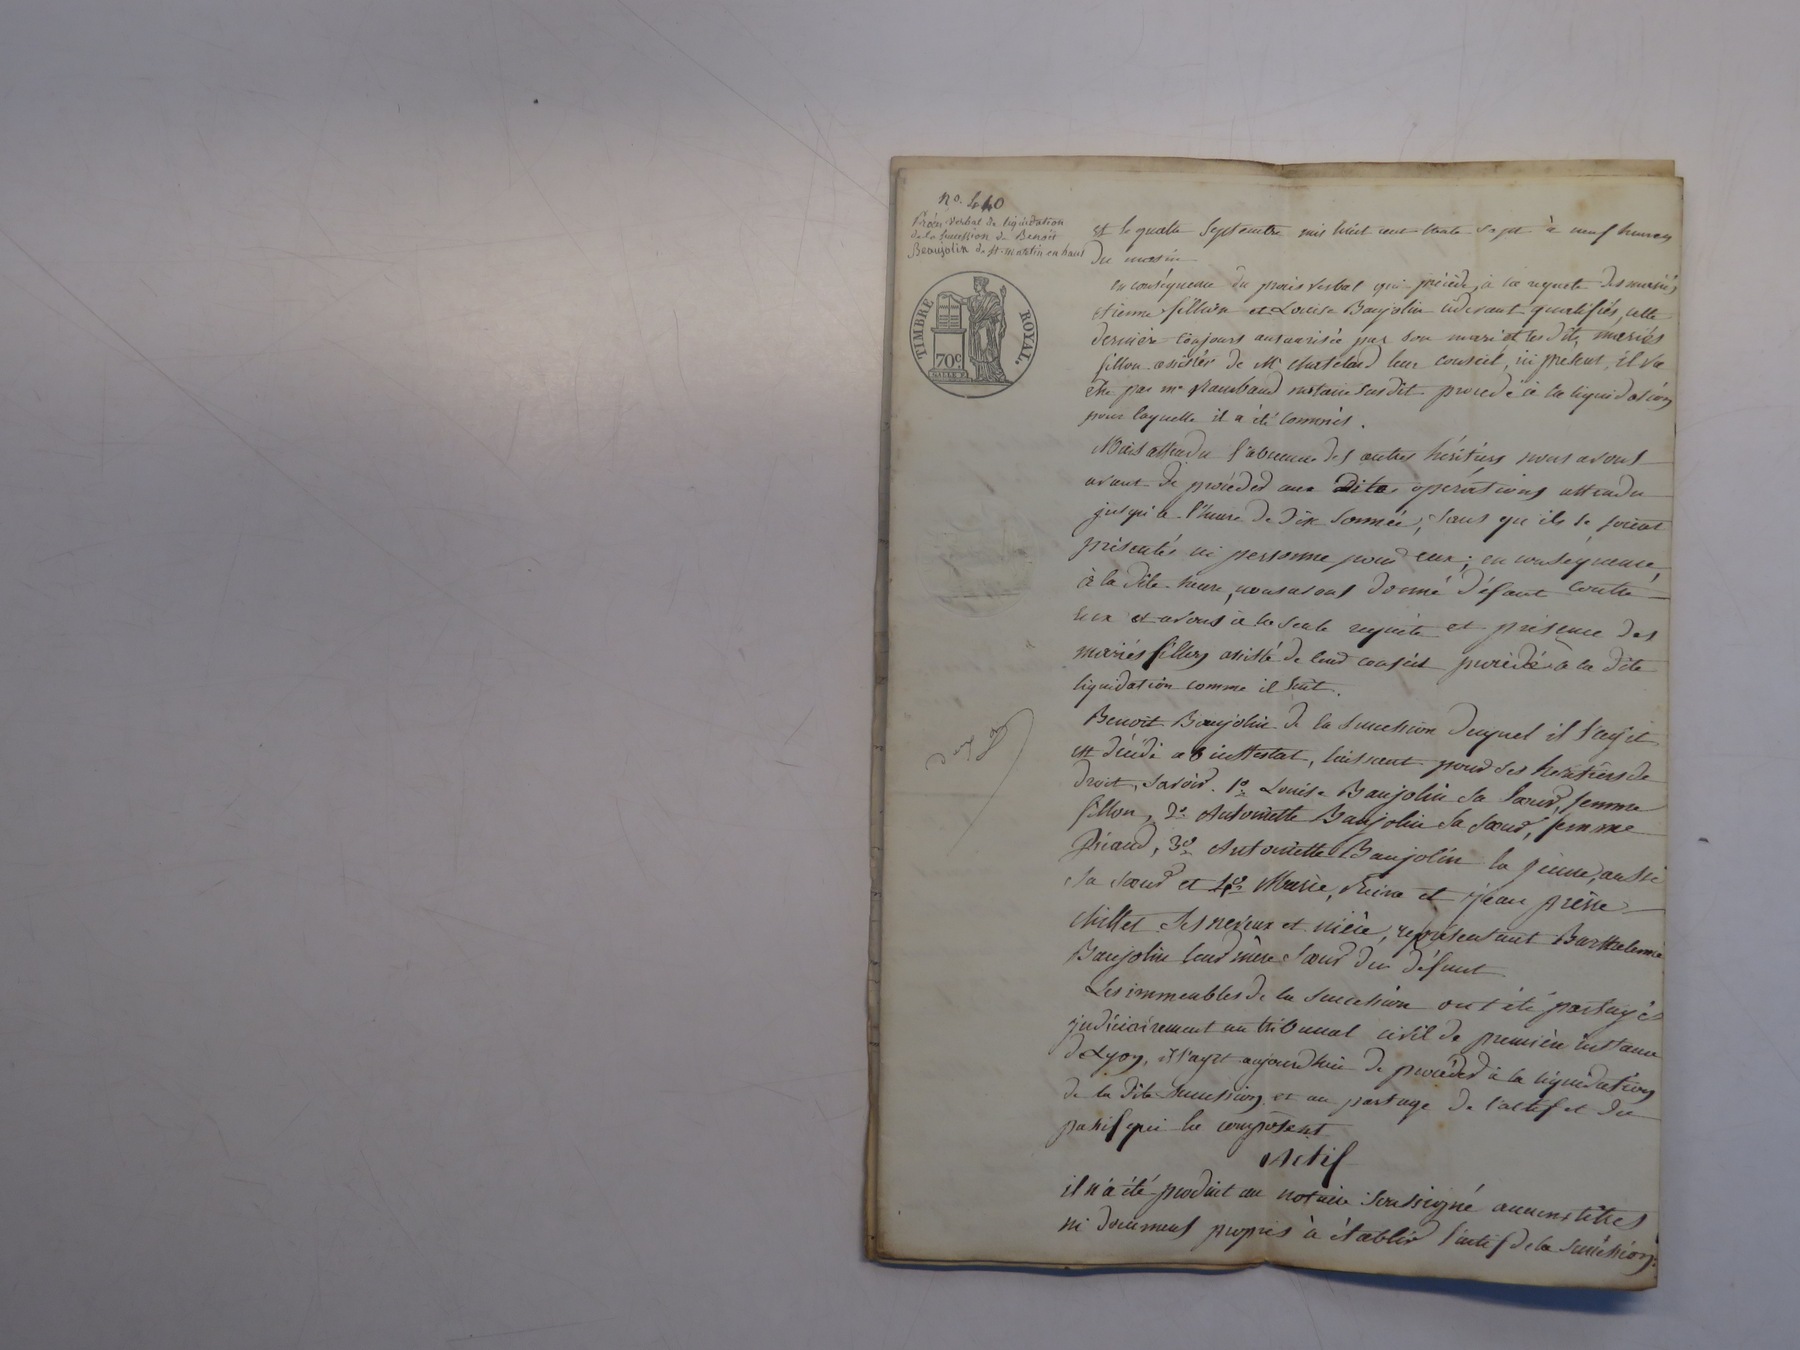 no. 440
Procès verbal de liquidation
de la Succession de Benoit
Beaujolin de St. martin en haut
TIMBRE ROYAL.
70c
et le quatre Septembre mil huit cent trente sept à neuf heures
du matin
en conséquence du procès verbal qui précède, à la requete des mariés
etienne fillion et Louise Baujolin cidevant qualifiés, cette
dernière toujours autorisée par son mari et les dits mariés
fillon assistés de Me chatelard leur conseil, ici présent, il va
être par me Rambaud notaire susdit procédé à la liquidation
pour laquelle il a été commis.
Mais attendu l'absence des autres héritiers nous avons
avant de procéder aux dites opérations attendu
jusqu'à l'heure de dix sonnée, sans qu'ils se soient
présentés ni personne pour eux; en conséquence,
à la dite heure, nous avons donné défaut contre
eux et avons à la seule requête et présence des
mariés fillon assisté de leur conseil procédé à la dite
liquidation comme il suit.
Benoit Baujolin de la succession duquel il s'agit
est décédé ab intestat, laissant pour ses héritiers de
droit, savoir. 1o Louise Baujolin sa sœur, femme
fillon, 2o Antoinette Baujolin sa sœur, femme
Piraud, 3o Antoinette Baujolin la jeune, aussi
sa sœur et 4o Marie, Reine et jean pierre
chillet ses neveux et nièce, représentant Barthelemie
Baujolin leur mère sœur du défunt
Les immeubles de la succession ont été partagés
judiciairement au tribunal civil de première instance
de Lyon, il s'agit aujourd'hui de procéder à la liquidation
de la dite succession et au partage de l'actif et du
passif qui la composent
Actif
il n'a été produit au notaire soussigné aucuns titres
ni documens propres à établir l'actif de la succession;